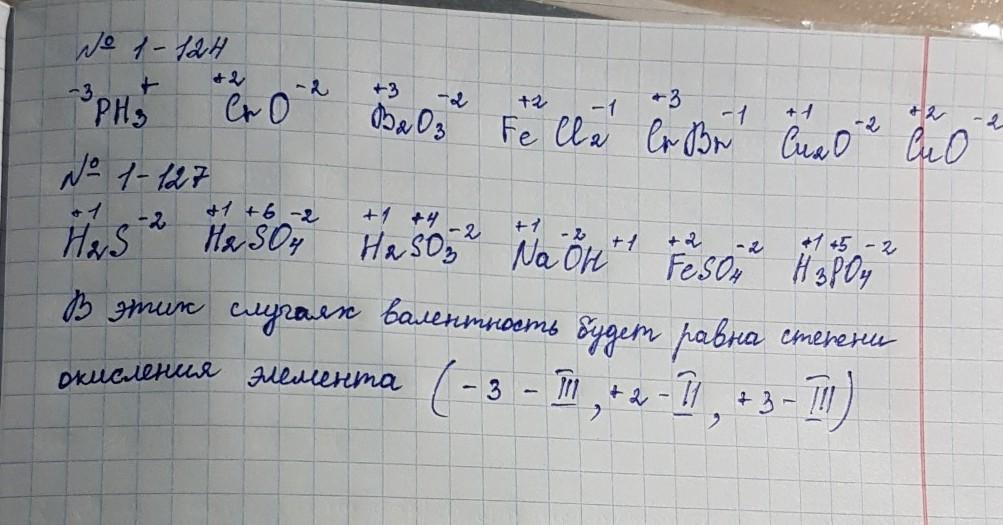 № 1-124
⁻³PH₃⁺ Cr⁺²O⁻² B₂⁺³O₃⁻² Fe⁺²Cl₂⁻¹ Cr⁺³Br⁻¹ Cu₂⁺¹O⁻² Cu⁺²O⁻²
№ 1-127
H₂⁺¹S⁻² H₂⁺¹S⁺⁶O₄⁻² H₂⁺¹S⁺⁴O₃⁻² Na⁺¹O⁻²H⁺¹ Fe⁺²SO₄⁻² H₃⁺¹P⁺⁵O₄⁻²
В этих случаях валентность будет равна степени
окисления элемента (-3 - III, +2 - II, +3 - III)